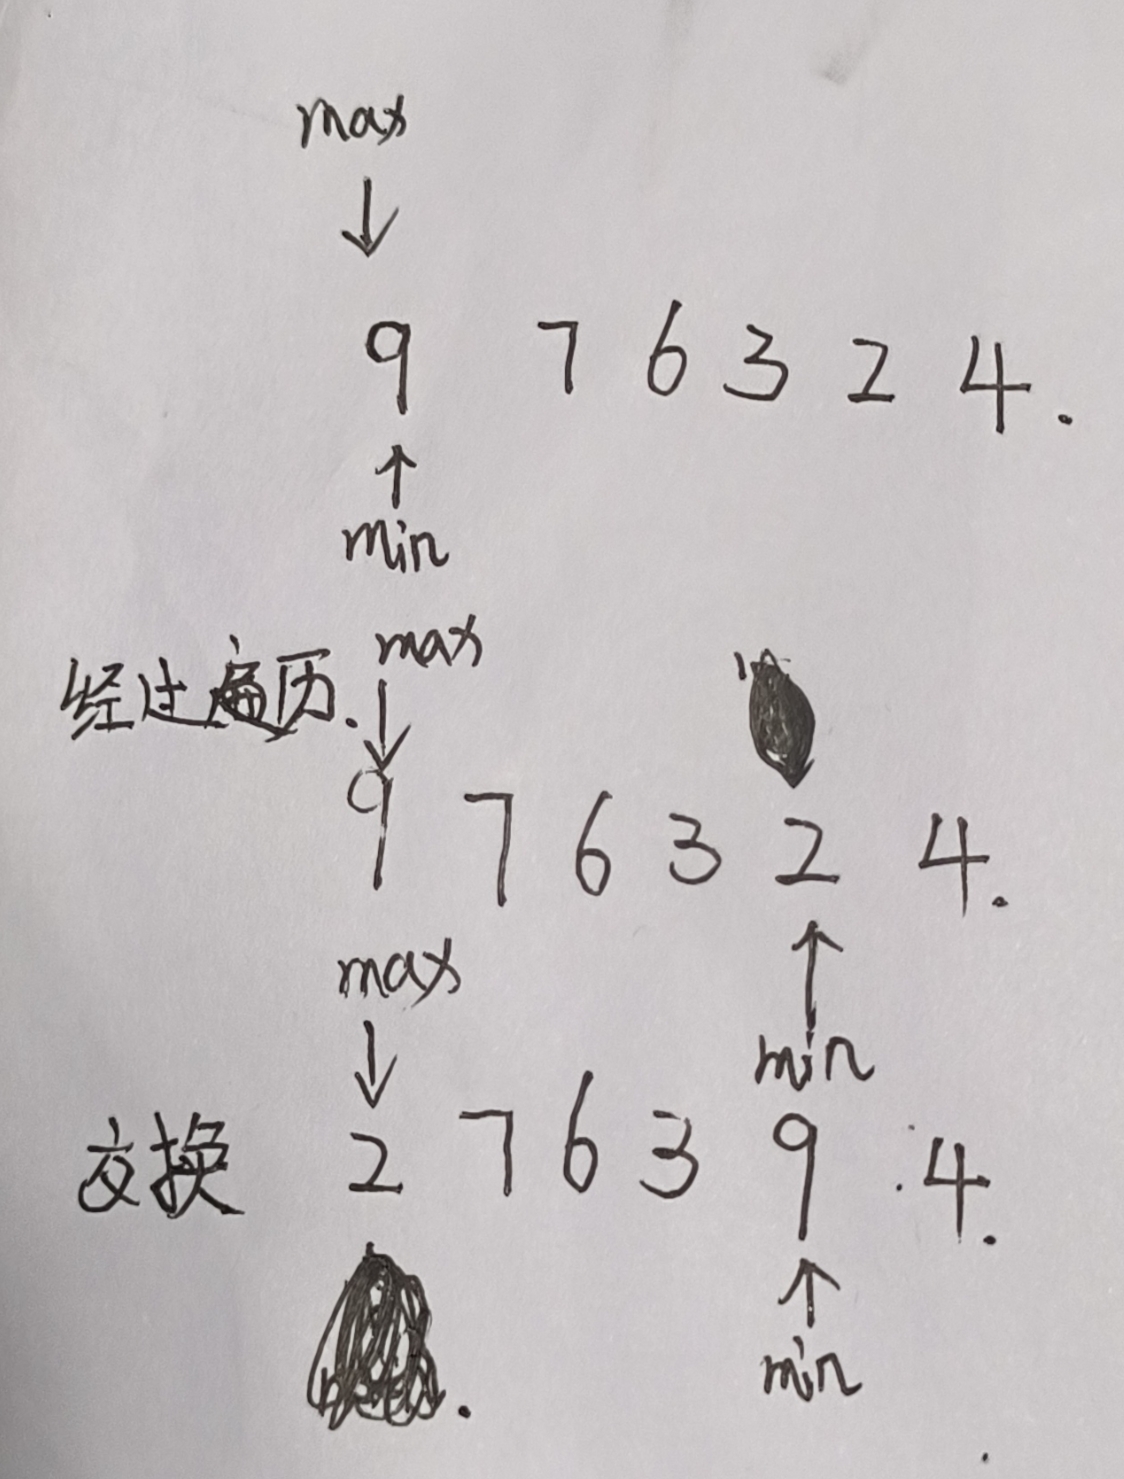 max
↓
9 7 6 3 2 4.
↑
min
max
经过遍历. ↓
9 7 6 3 2 4.
↑
max min
↓
交换 2 7 6 3 9 4.
↑
min